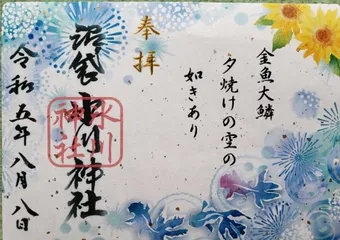 金魚大鱗
夕焼けの空の
如きあり
奉拝
沼袋氷川神社
氷川神社
令和五年八月八日